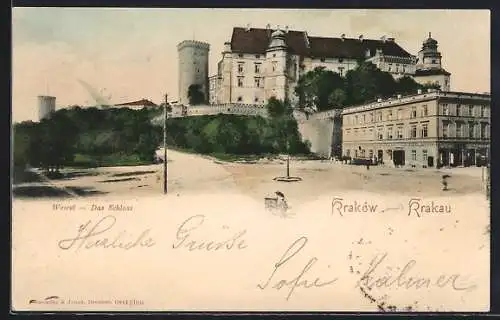 Wawel – Das Schloss
Kraków – Krakau
Herzliche Grüße
Sofie
Dresden